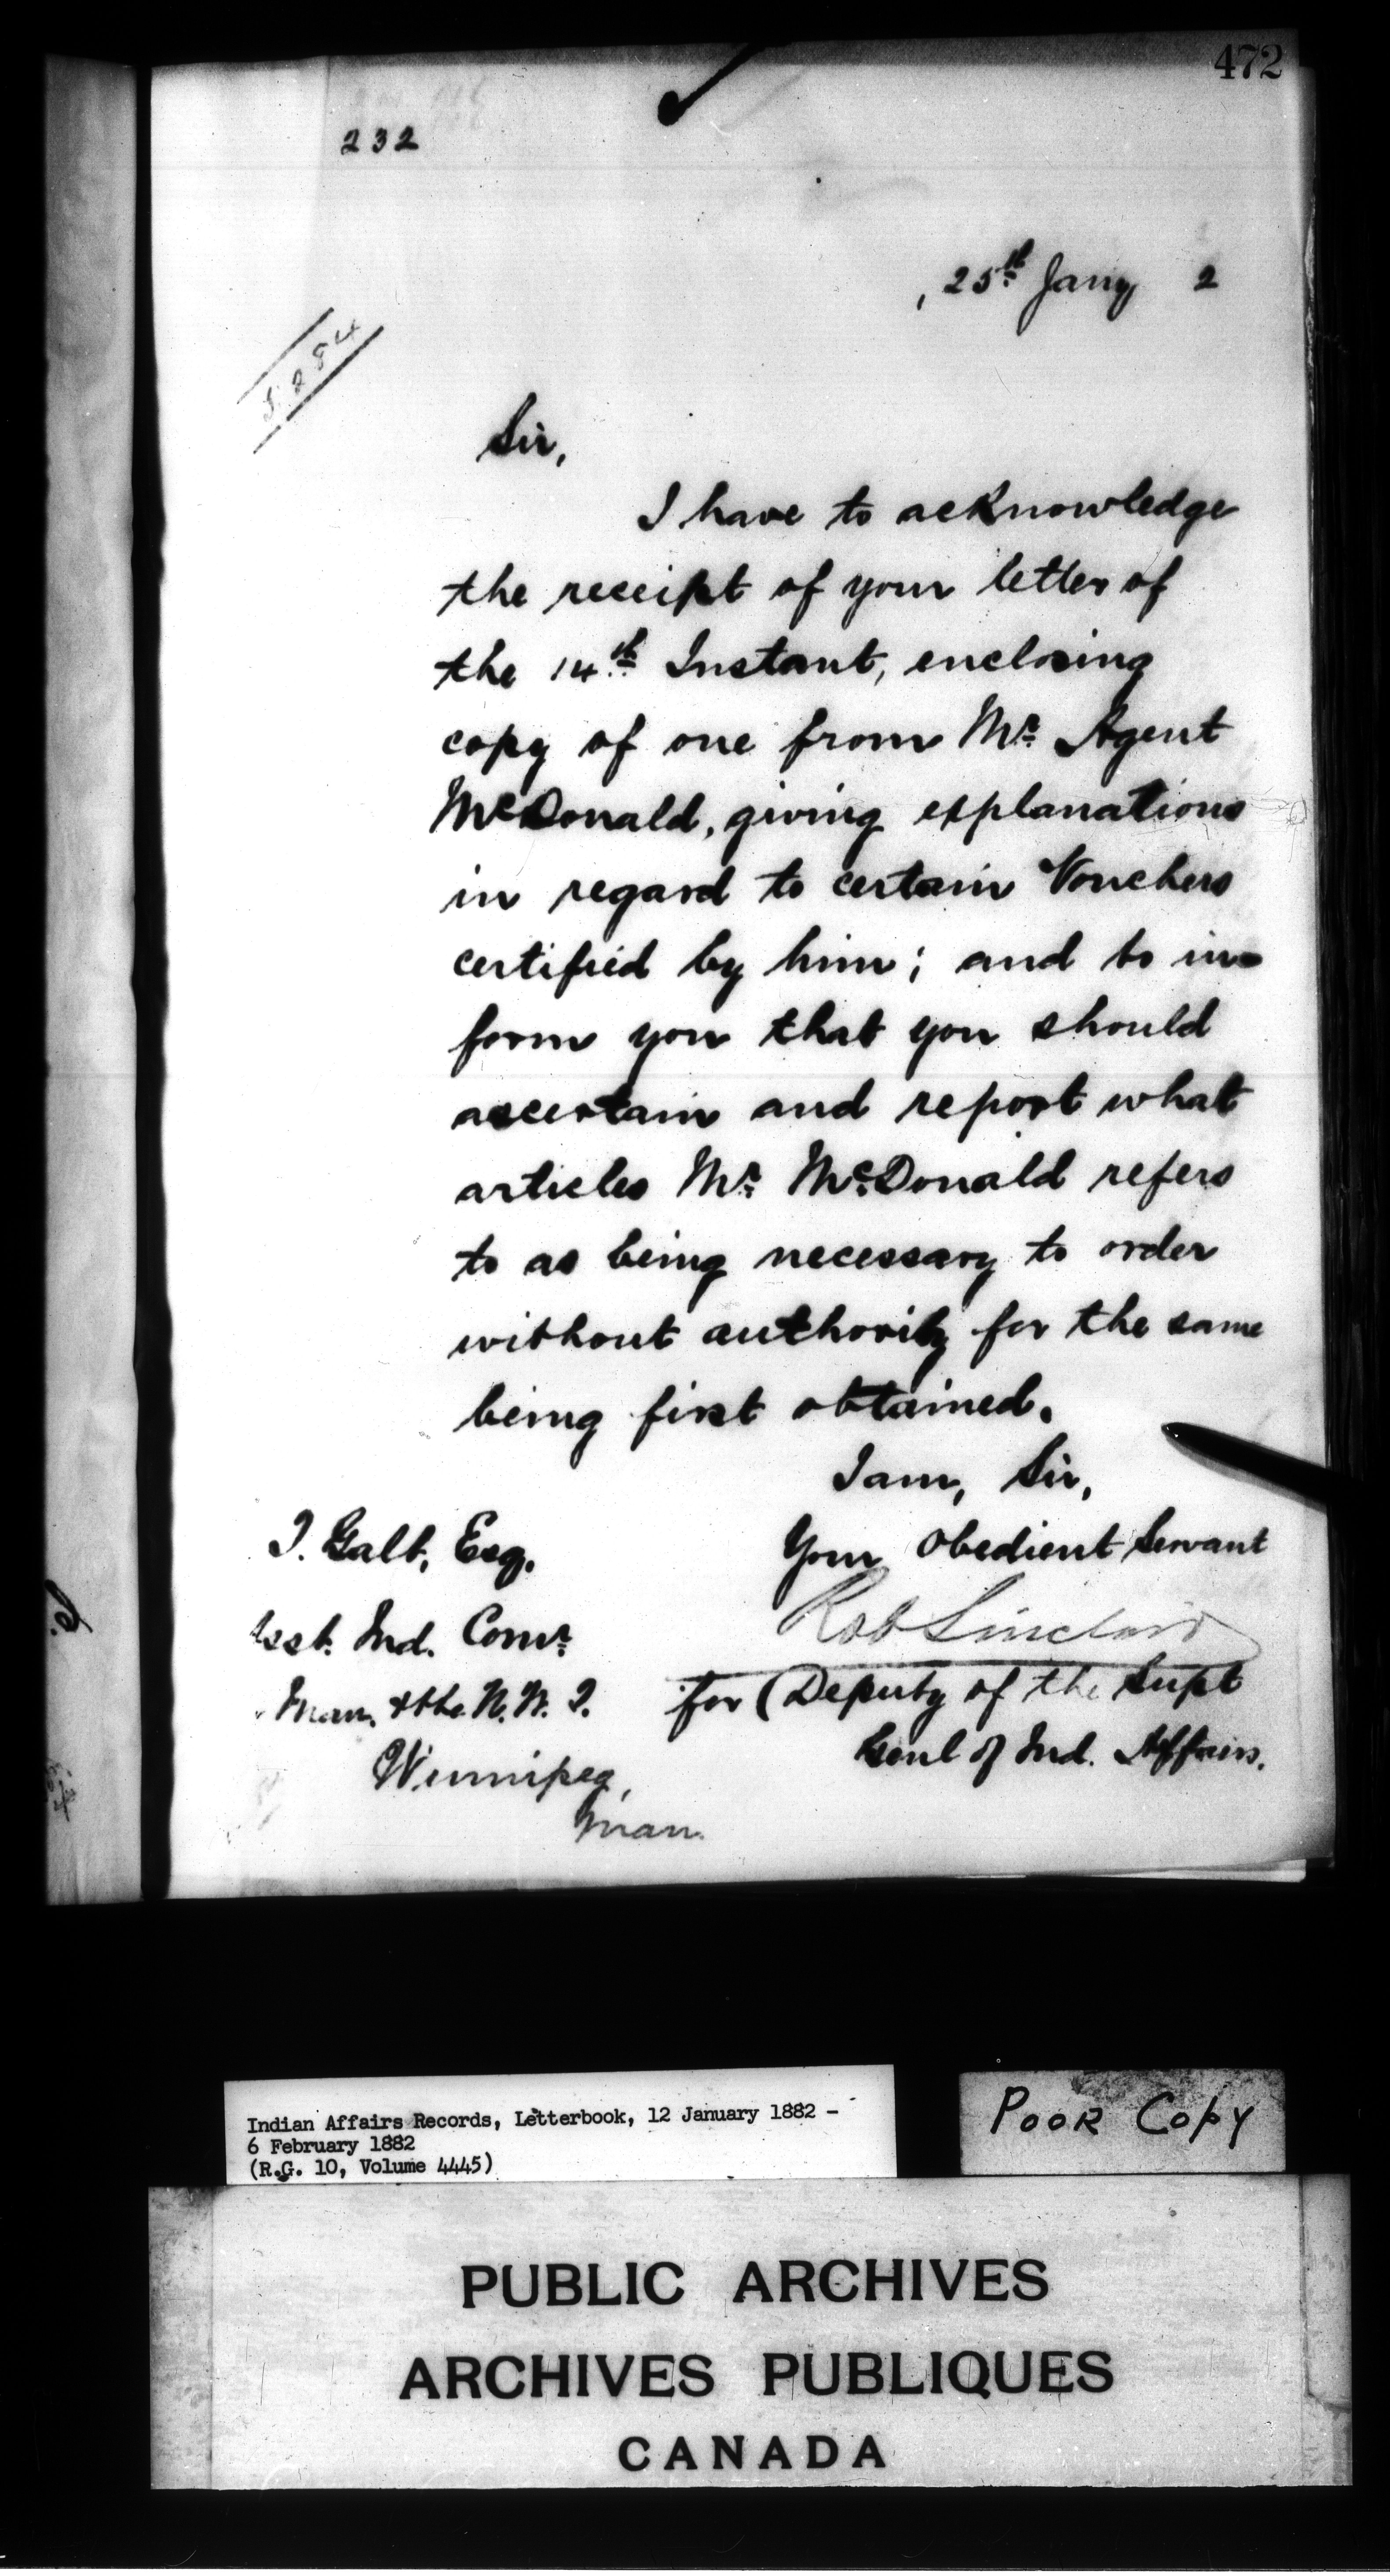 472
232
, 25th Jany 2
5284
Sir,
I have to acknowledge
the receipt of your letter of
the 14th Instant, enclosing
copy of one from Mr. Agent
McDonald, giving explanations
in regard to certain Vouchers
certified by him; and to in-
form you that you should
ascertain and report what
articles Mr. McDonald refers
to as being necessary to order
without authority for the same
being first obtained.
I am, Sir,
Your Obedient Servant
Rob Sinclair
for (Deputy of the Supt
Genl of Ind. Affairs.
T. Galt, Esq.
Asst. Ind. Comr.
Man. & the N.W.T.
Winnipeg,
Man.
Indian Affairs Records, Letterbook, 12 January 1882 -
6 February 1882
(R.G. 10, Volume 4445)
POOR COPY
PUBLIC ARCHIVES
ARCHIVES PUBLIQUES
CANADA